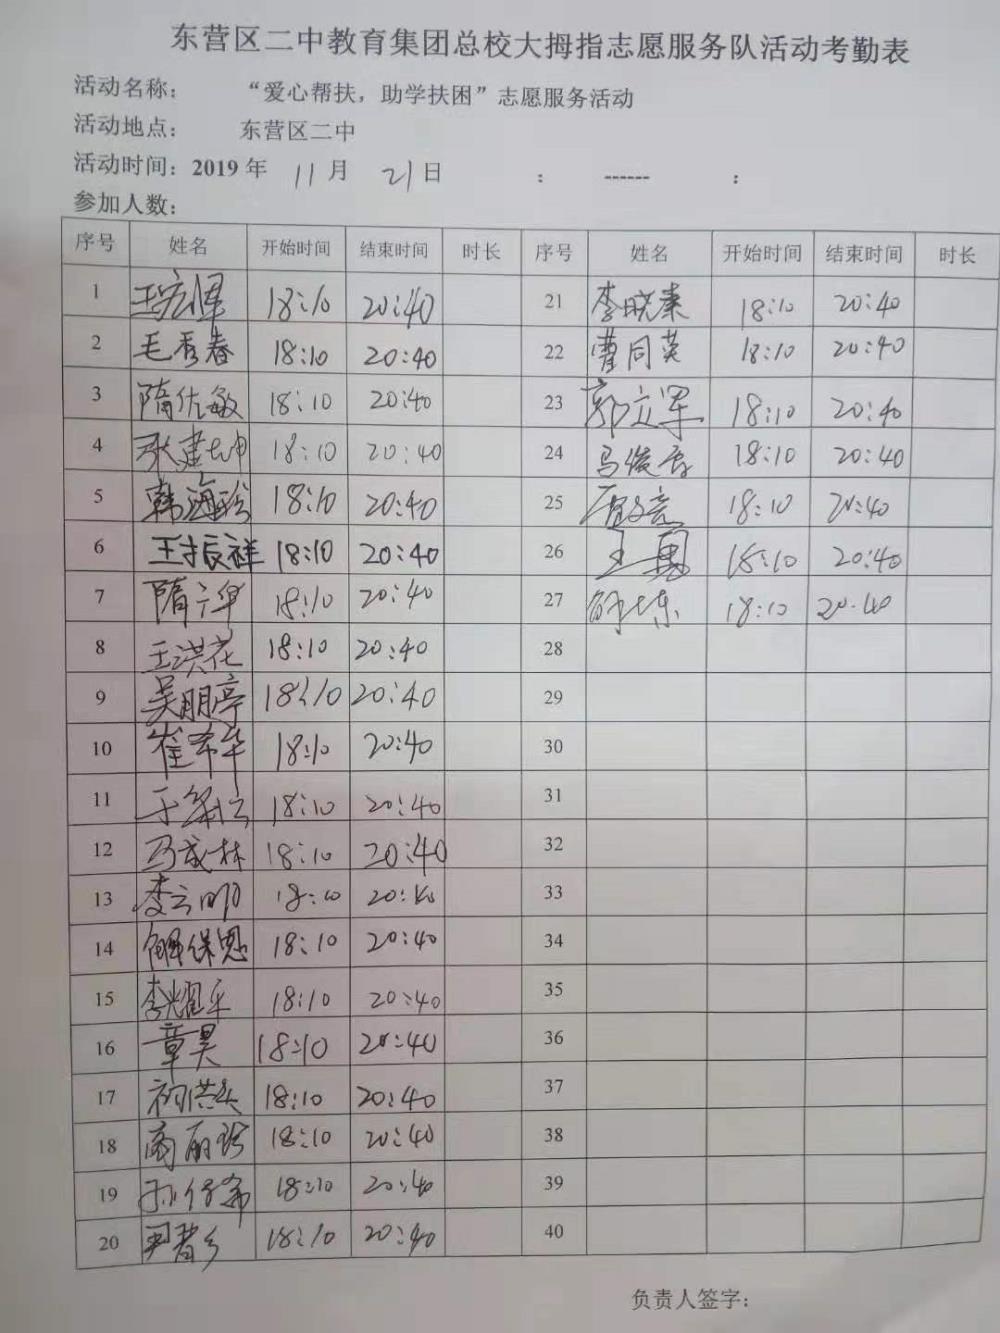 东营区二中教育集团总校大拇指志愿服务队活动考勤表
活动名称： “爱心帮扶，助学扶困”志愿服务活动
活动地点： 东营区二中
活动时间：2019 年 11 月 21 日 ： ------ ：
参加人数：
序号 姓名 开始时间 结束时间 时长 序号 姓名 开始时间 结束时间 时长
1 王宏伟 18:10 20:40 21 李晓秦 18:10 20:40
2 毛秀春 18:10 20:40 22 曹同英 18:10 20:40
3 隋佐敏 18:10 20:40 23 郭立军 18:10 20:40
4 张建坤 18:10 20:40 24 马俊香 18:10 20:40
5 韩海珍 18:10 20:40 25 18:10 20:40
6 王振祥 18:10 20:40 26 王勇 18:10 20:40
7 隋 18:10 20:40 27 18:10 20:40
8 王洪花 18:10 20:40 28
9 吴朋亭 18:10 20:40 29
10 崔希华 18:10 20:40 30
11 于 18:10 20:40 31
12 马成林 18:10 20:40 32
13 李云明 18:10 20:40 33
14 解保恩 18:10 20:40 34
15 李耀平 18:10 20:40 35
16 章昊 18:10 20:40 36
17 18:10 20:40 37
18 商丽珍 18:10 20:40 38
19 孙 18:10 20:40 39
20 18:10 20:40 40
负责人签字：